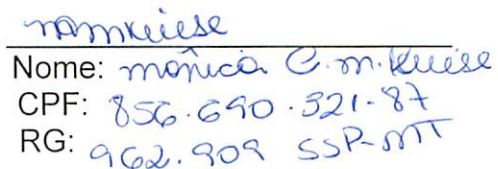 Nome: Mônica C. M. Kuiese
CPF: 856.690.321-87
RG: 962.909 SSP-MT